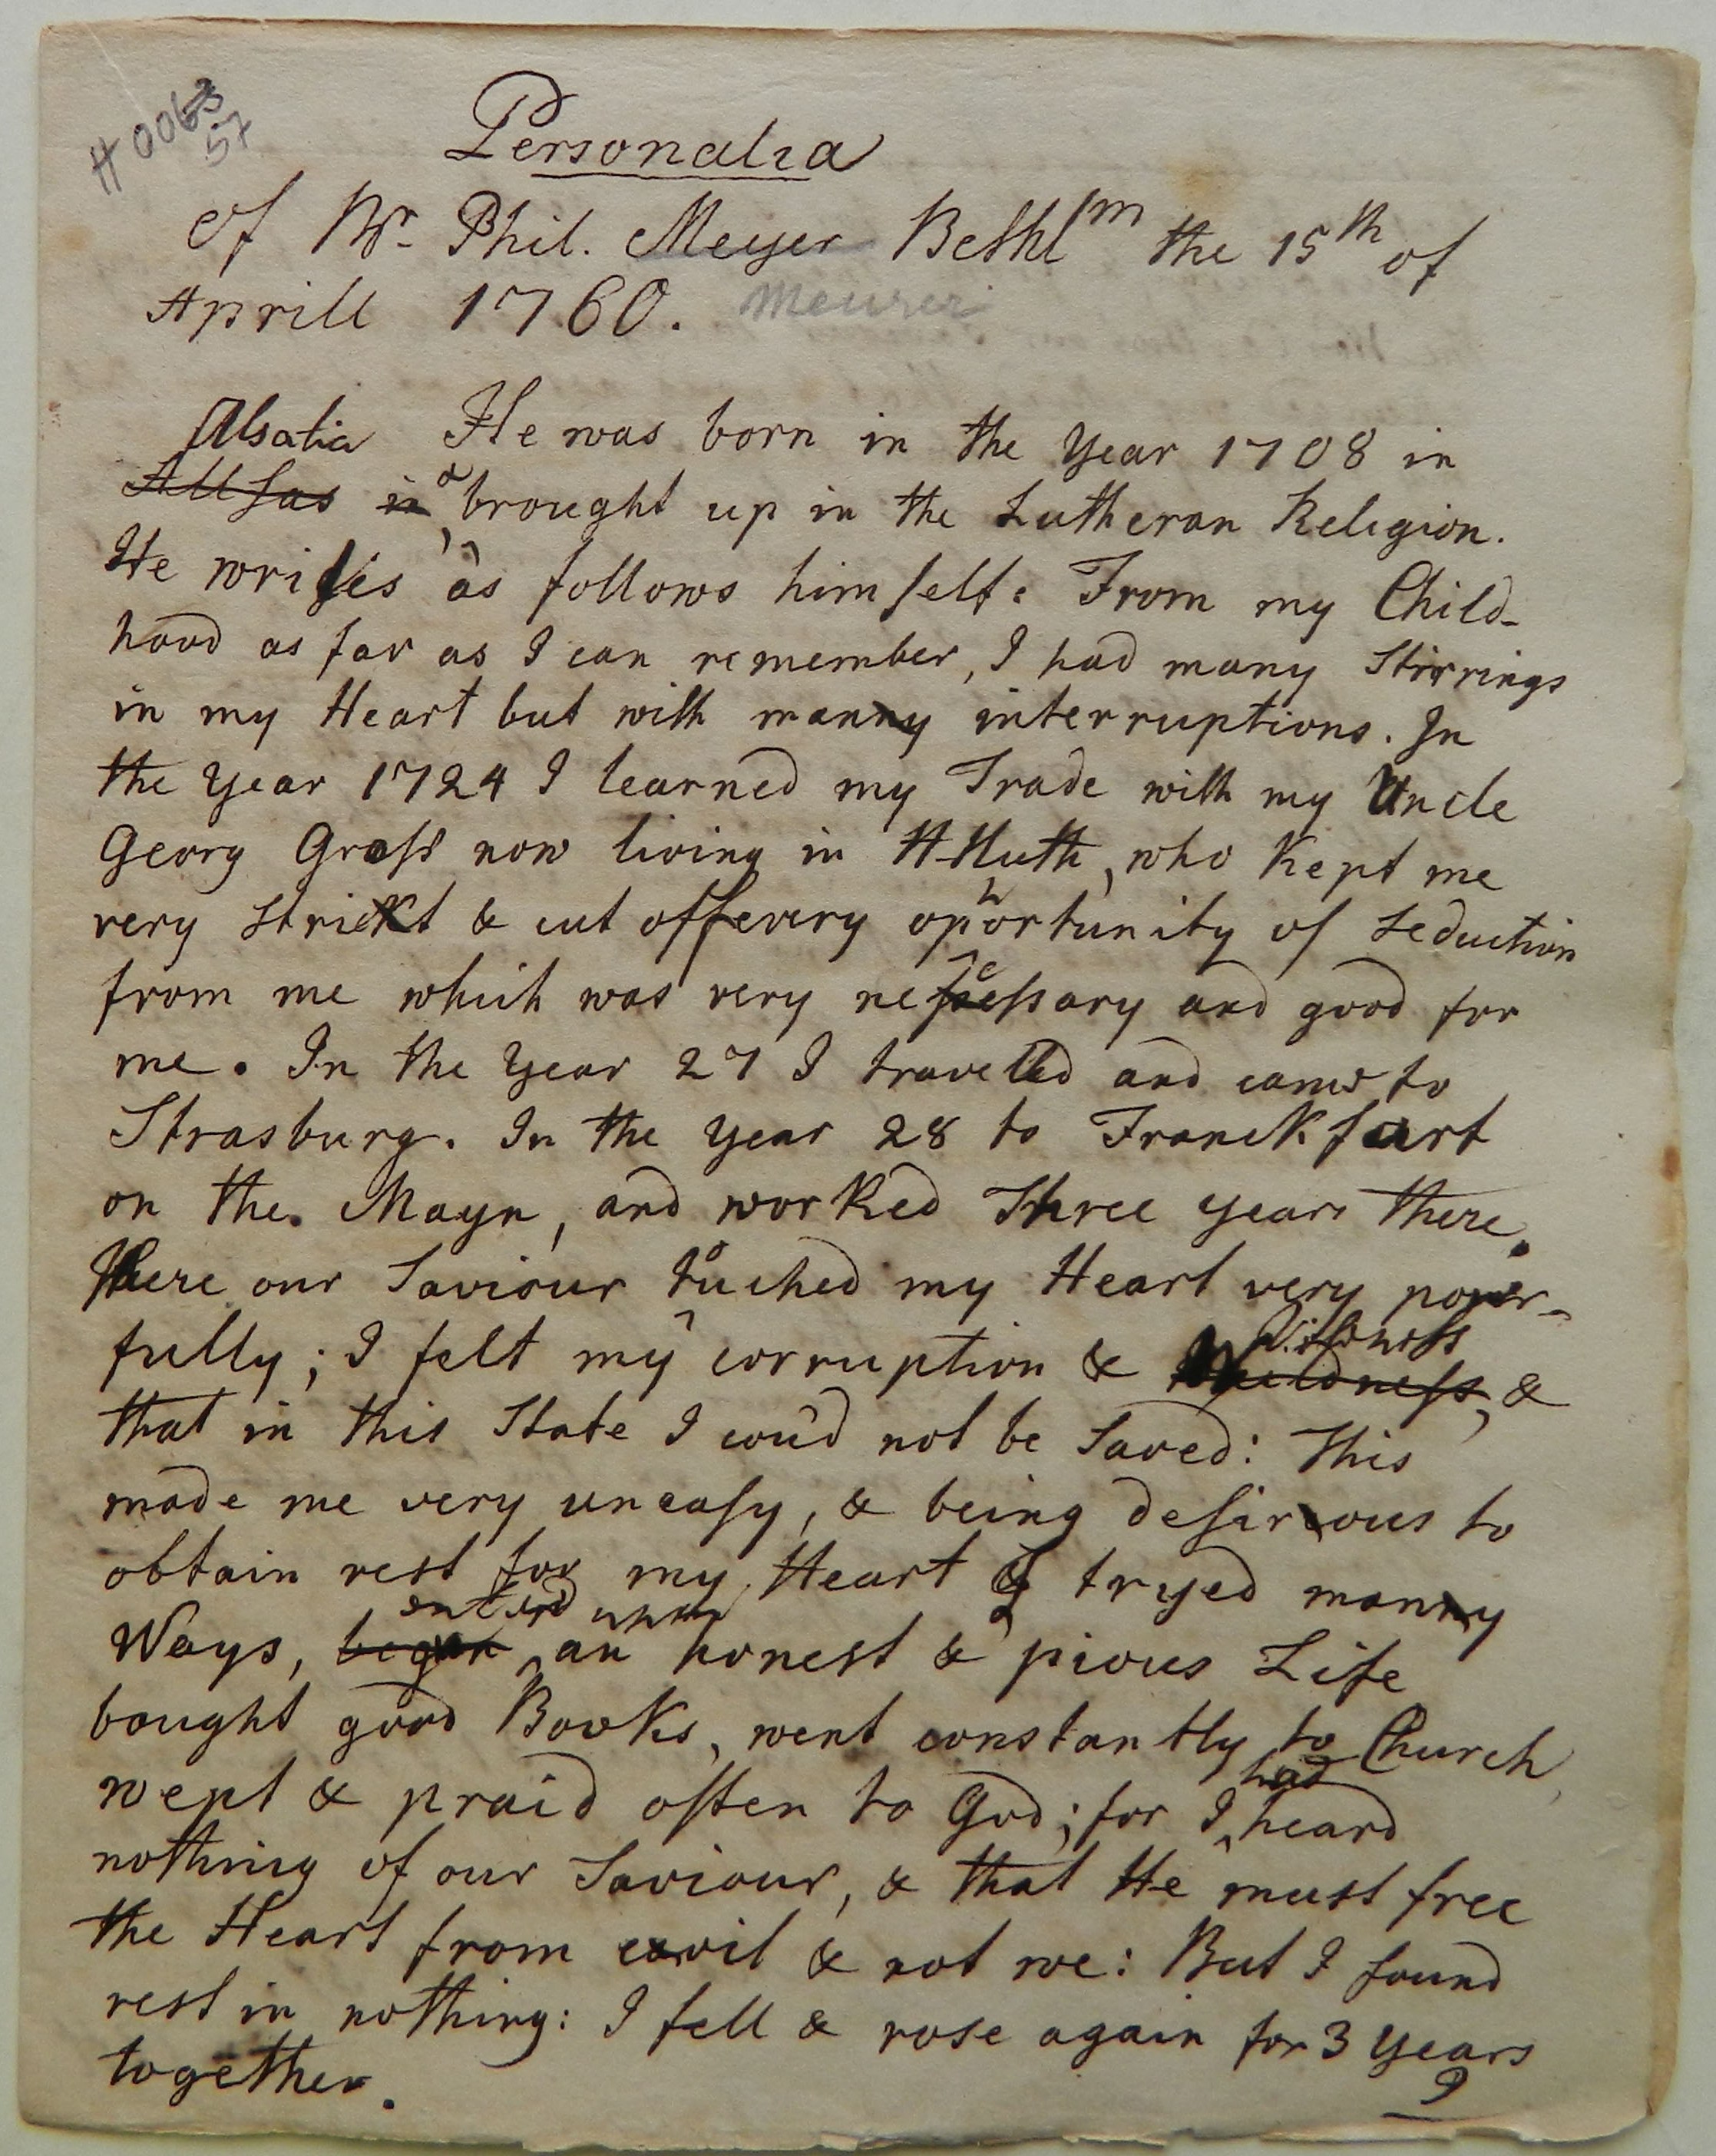 H 0063
57
Personalia
of Br. Phil. Meyer Bethlm the 15th of
Aprill 1760. Meurer
Alsatia He was born in the Year 1708 in
Allsas in & brought up in the Lutheran Religion.
He writes as follows himself: From my Child-
hood as far as I can remember, I had many Stirrings
in my Heart but with manny interruptions. In
the Year 1724 I learned my Trade with my Uncle
Georg Grass now living in HHuth, who kept me
very strickt & cut off every opportunity of Seduction
from me which was very necessary and good for
me. In the Year 27 I travelled and came to
Strasburg. In the Year 28 to Franckfurt
on the Mayn, and worked Three years there.
Here our Saviour touched my Heart very power-
fully; I felt my corruption & Wildness
Weildness, &
that in this State I cou'd not be Saved: This
made me very uneasy, & being desirous to
obtain rest for my Heart I tryed manny
enter'd upon
Ways, began an honest & pious Life
bought good Books, went constantly to Church,
wept & praid often to God; for I had heard
nothing of our Saviour, & that He must free
the Heart from evil & not we: But I found
rest in nothing: I fell & rose again for 3 Years
together. I